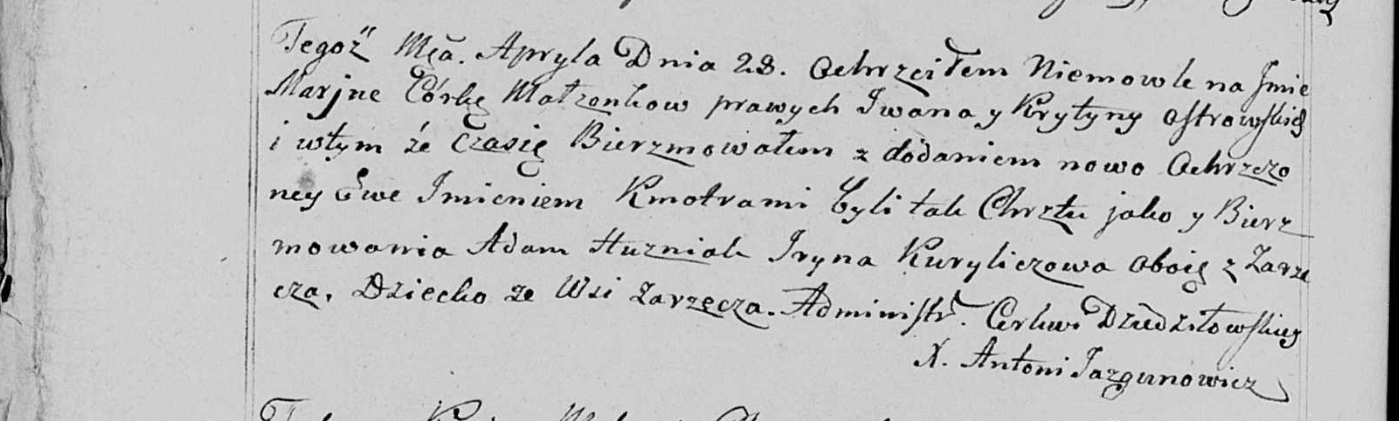 Tegoż Mca. Apryla Dnia 28. Ochrzciłem Niemowle na Jmie
Marjne Córkę Małżonkow prawych Iwana y Krystyny Ostrowskich
i wtym że Czasię Bierzmowałem z dodaniem nowo Ochrzczo
ney Ewe Jmieniem Kmotrami byli tak Chrztu jako y Bierz
mowania Adam Huzniak Jryna Kuryliczowa oboie z Zarze
cza. Dziecko ze Wsi Zarzecza. Administr. Cerkwi Dziedziłowskiey
X. Antoni Jazgunowicz